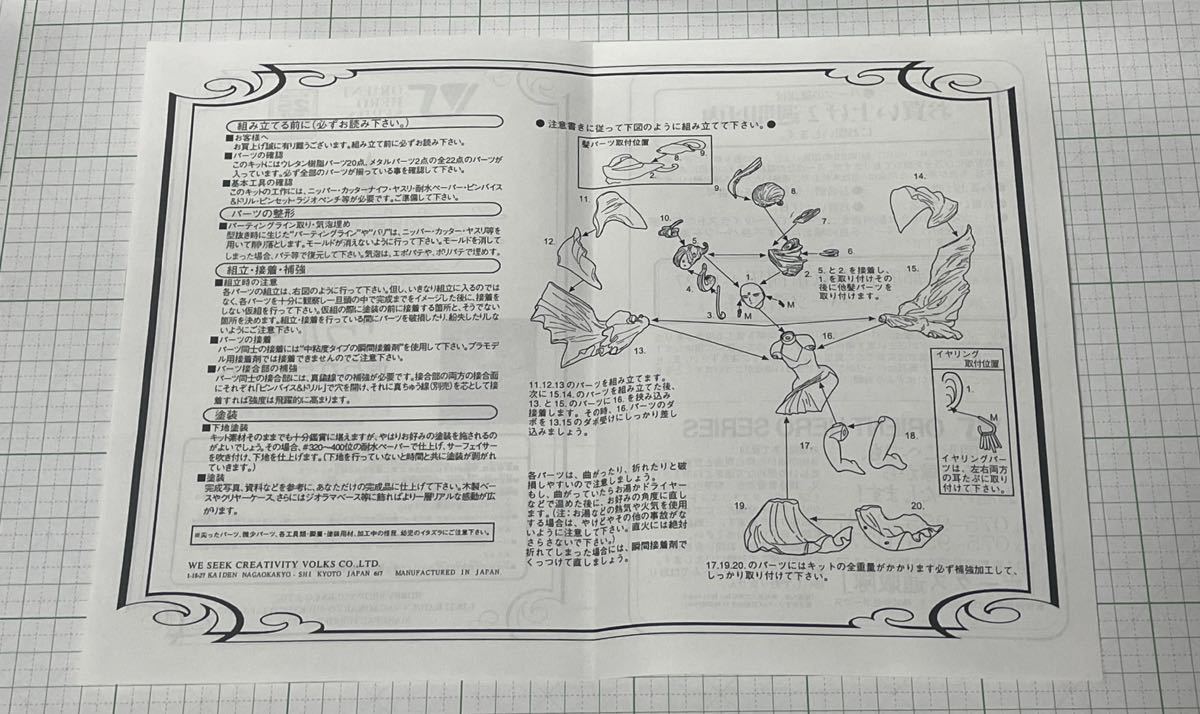 組み立てる前に(必ずお読み下さい。)
■お客様へ
お買上げ誠に有り難うございます。組み立て前に必ずお読み下さい。
■パーツの確認
このキットにはウレタン樹脂パーツ20点、メタルパーツ2点の全22点のパーツが
入っています。必ず全部のパーツが揃っている事を確認して下さい。
■基本工具の確認
このキットの工作には、ニッパー・カッターナイフ・ヤスリ・耐水ペーパー・ピンバイス
&ドリル・ピンセット・ラジオペンチ等が必要です。ご準備して下さい。
パーツの整形
■パーティングライン取り・気泡埋め
型抜き時に生じた"パーティングライン"や"バリ"は、ニッパー・カッター・ヤスリ等を
用いて削り落とします。モールドが消えないように行って下さい。モールドを消して
しまった場合、パテ等で復元して下さい。気泡は、エポパテや、ポリパテで埋めます。
組立・接着・補強
■組立時の注意
各パーツの組立は、右図のように行って下さい。但し、いきなり組立に入るのでは
なく、各パーツを十分に観察し一旦頭の中で完成までをイメージした後に、接着を
しない仮組を行って下さい。仮組の際に塗装の前に接着する箇所と、そうでない
箇所を決めます。組立・接着を行っている間にパーツを破損したり、紛失したりしな
いようにご注意下さい。
■パーツの接着
パーツ同士の接着には"中粘度タイプの瞬間接着剤"を使用して下さい。プラモデ
ル用接着剤では接着できませんのでご注意下さい。
■パーツ接合部の補強
パーツ同士の接合部には、真鍮線での補強が必要です。接合部の両方の接合面
にそれぞれ「ピンバイス&ドリル」で穴を開け、それに真ちゅう線(別売)を芯として接
着すれば強度は飛躍的に高まります。
塗装
■下地塗装
キット素材そのままでも十分鑑賞に堪えますが、やはりお好みの塗装を施されるの
がよいでしょう。その場合、#320〜400位の耐水ペーパーで仕上げ、サーフェイサー
を吹き付け、下地を仕上げます。(下地を行っていないと時間と共に塗装が剥がれ
ていきます。)
■塗装
完成写真、資料などを参考に、あなただけの完成品に仕上げて下さい。木製ベー
スやクリヤーケース、さらにはジオラマベース等に飾ればより一層リアルな感動が広
がります。
※尖ったパーツ、微少パーツ、各工具類・瞬着・塗装用材、加工中の怪我、幼児のイタズラにご注意下さい。
WE SEEK CREATIVITY VOLKS CO.,LTD.
1-10-27 KAIDEN NAGAOKAKYO-SHI KYOTO JAPAN 617 MANUFACTURED IN JAPAN.
● 注意書きに従って下図のように組み立てて下さい。●
髪パーツ取付位置
9.
8.
2.
11.
12.
13.
10.
9.
8.
7.
6.
5.
4.
3.
2.
1.
M
M
14.
15.
16.
17.
18.
19.
20.
5.と2.を接着し、
1.を取り付けその
後に他髪パーツを
取り付けます。
11.12.13のパーツを組み立てます。
次に15.14.のパーツを組み立てた後、
13.と15.のパーツに16.を挟み込み
接着します。その時、16.パーツのダ
ボを13.15のダボ受けにしっかり差し
込みましょう。
イヤリング
取付位置
1.
M
イヤリングパー
ツは、左右両方
の耳たぶに取り
付けて下さい。
各パーツは、曲がったり、折れたりと破
損しやすいので注意しましょう。
もし、曲がっていたらお湯かドライヤー
などで温めた後に、お好みの角度に直し
ます。(注:お湯などの熱気や火気を使用
する場合は、やけどやその他の事故がな
いように注意して下さい。直火には絶対
さらさないで下さい。)
折れてしまった場合には、瞬間接着剤で
くっつけて直しましょう。
17.19.20.のパーツにはキットの全重量がかかります必ず補強加工して、
しっかり取り付けて下さい。